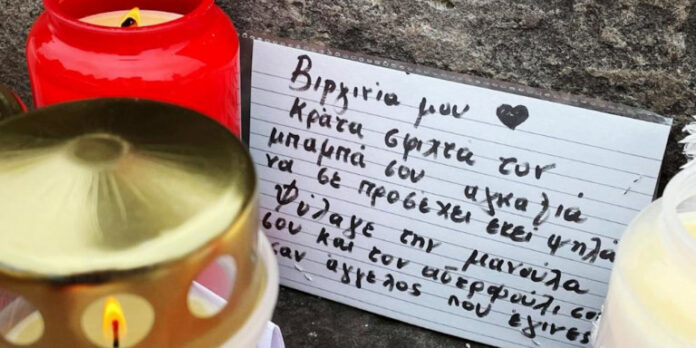 Βιργινια μου ♥
Κρατα σφιχτα τον
μπαμπά σου αγκαλιά
να σε προσεχει εκεί ψηλά
Φύλαγε την μανούλα
σου και τον αδερφούλη σου
σαν άγγελος που έγινες